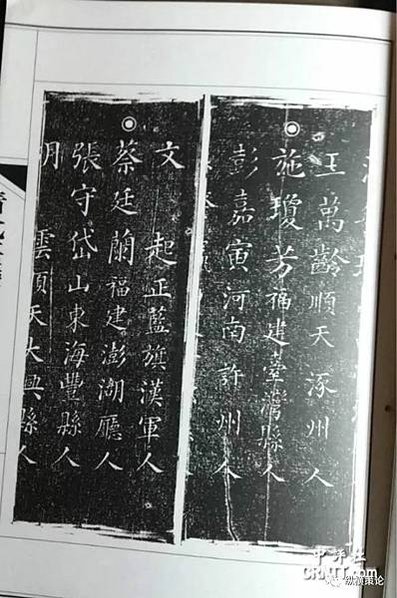 王萬齡順天涿州人
施瓊芳福建臺灣縣人
彭嘉寅河南許州人
文起正藍旗漢軍人
蔡廷蘭福建澎湖廳人
張守岱山東海豐縣人
雲順天大興縣人
中評社
CRNTT.com
纵横策论